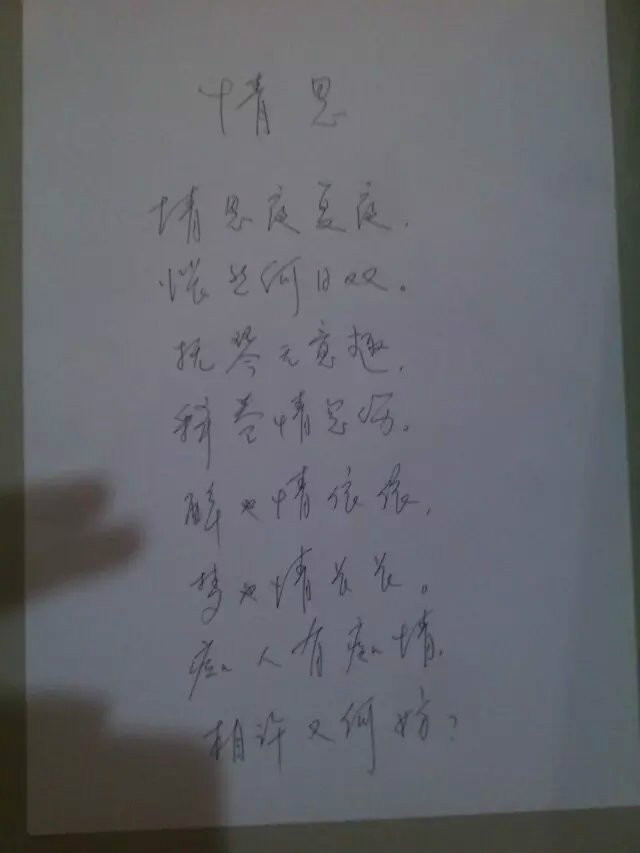 情思
情思度夏度,
何日双。
抚琴无意趣,
释卷情思伤。
醉也情依依,
梦也情长长。
痴人有痴情,
相许又何妨?